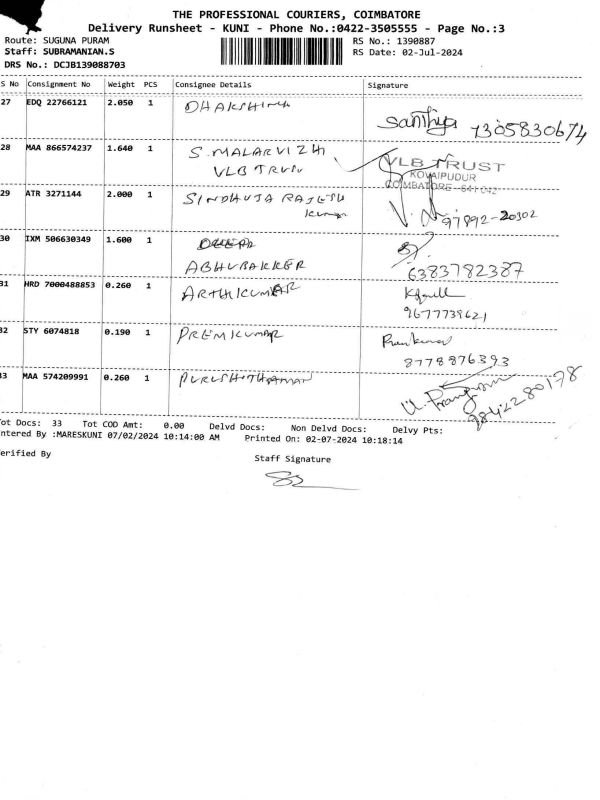 THE PROFESSIONAL COURIERS, COIMBATORE
Delivery Runsheet - KUNI - Phone No.:0422-3505555 - Page No.:3
Route: SUGUNA PURAM RS No.: 1390887
Staff: SUBRAMANIAN.S RS Date: 02-Jul-2024
DRS No.: DCJB139088703
S No Consignment No Weight PCS Consignee Details Signature
27 EDQ 22766121 2.050 1 Santhiya 7305830674
28 MAA 866574237 1.640 1 S.MALARVIZHI
VLB TRUST
VLB TRUST
KOVAIPUDUR
COIMBATORE - 641 042
29 ATR 3271144 2.000 1 SINDHUJA RAJESH
Kumar 97892-20302
30 IXM 506630349 1.600 1
ABHUBAKKER 6383782387
31 HRD 7000488853 0.260 1 ARTHIKUMAR
9677739621
32 STY 6074818 0.190 1 PREMKUMAR Premkumar
8778876393
33 MAA 574209991 0.260 1 PURUSHOTHAMAN
9842280178
Tot Docs: 33 Tot COD Amt: 0.00 Delvd Docs: Non Delvd Docs: Delvy Pts:
ntered By :MARESKUNI 07/02/2024 10:14:00 AM Printed On: 02-07-2024 10:18:14
erified By Staff Signature